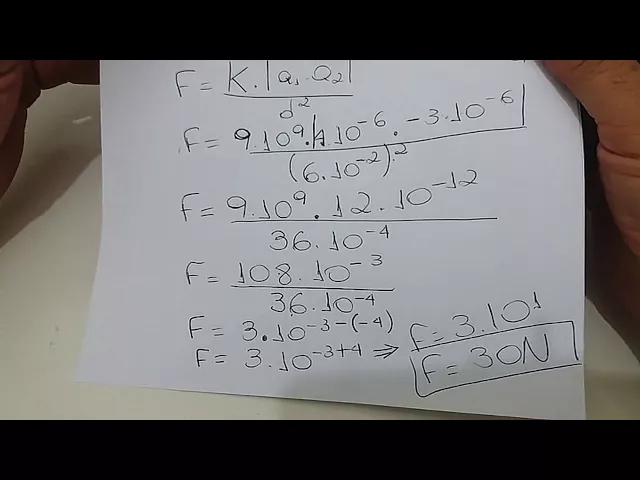 F = K.|Q₁.Q₂| / d²
F = 9.10⁹.|4.10⁻⁶.-3.10⁻⁶| / (6.10⁻²)²
F = 9.10⁹.12.10⁻¹² / 36.10⁻⁴
F = 108.10⁻³ / 36.10⁻⁴
F = 3.10⁻³⁻⁽⁻⁴⁾
F = 3.10⁻³⁺⁴ ⇒ F = 3.10¹
F = 30N